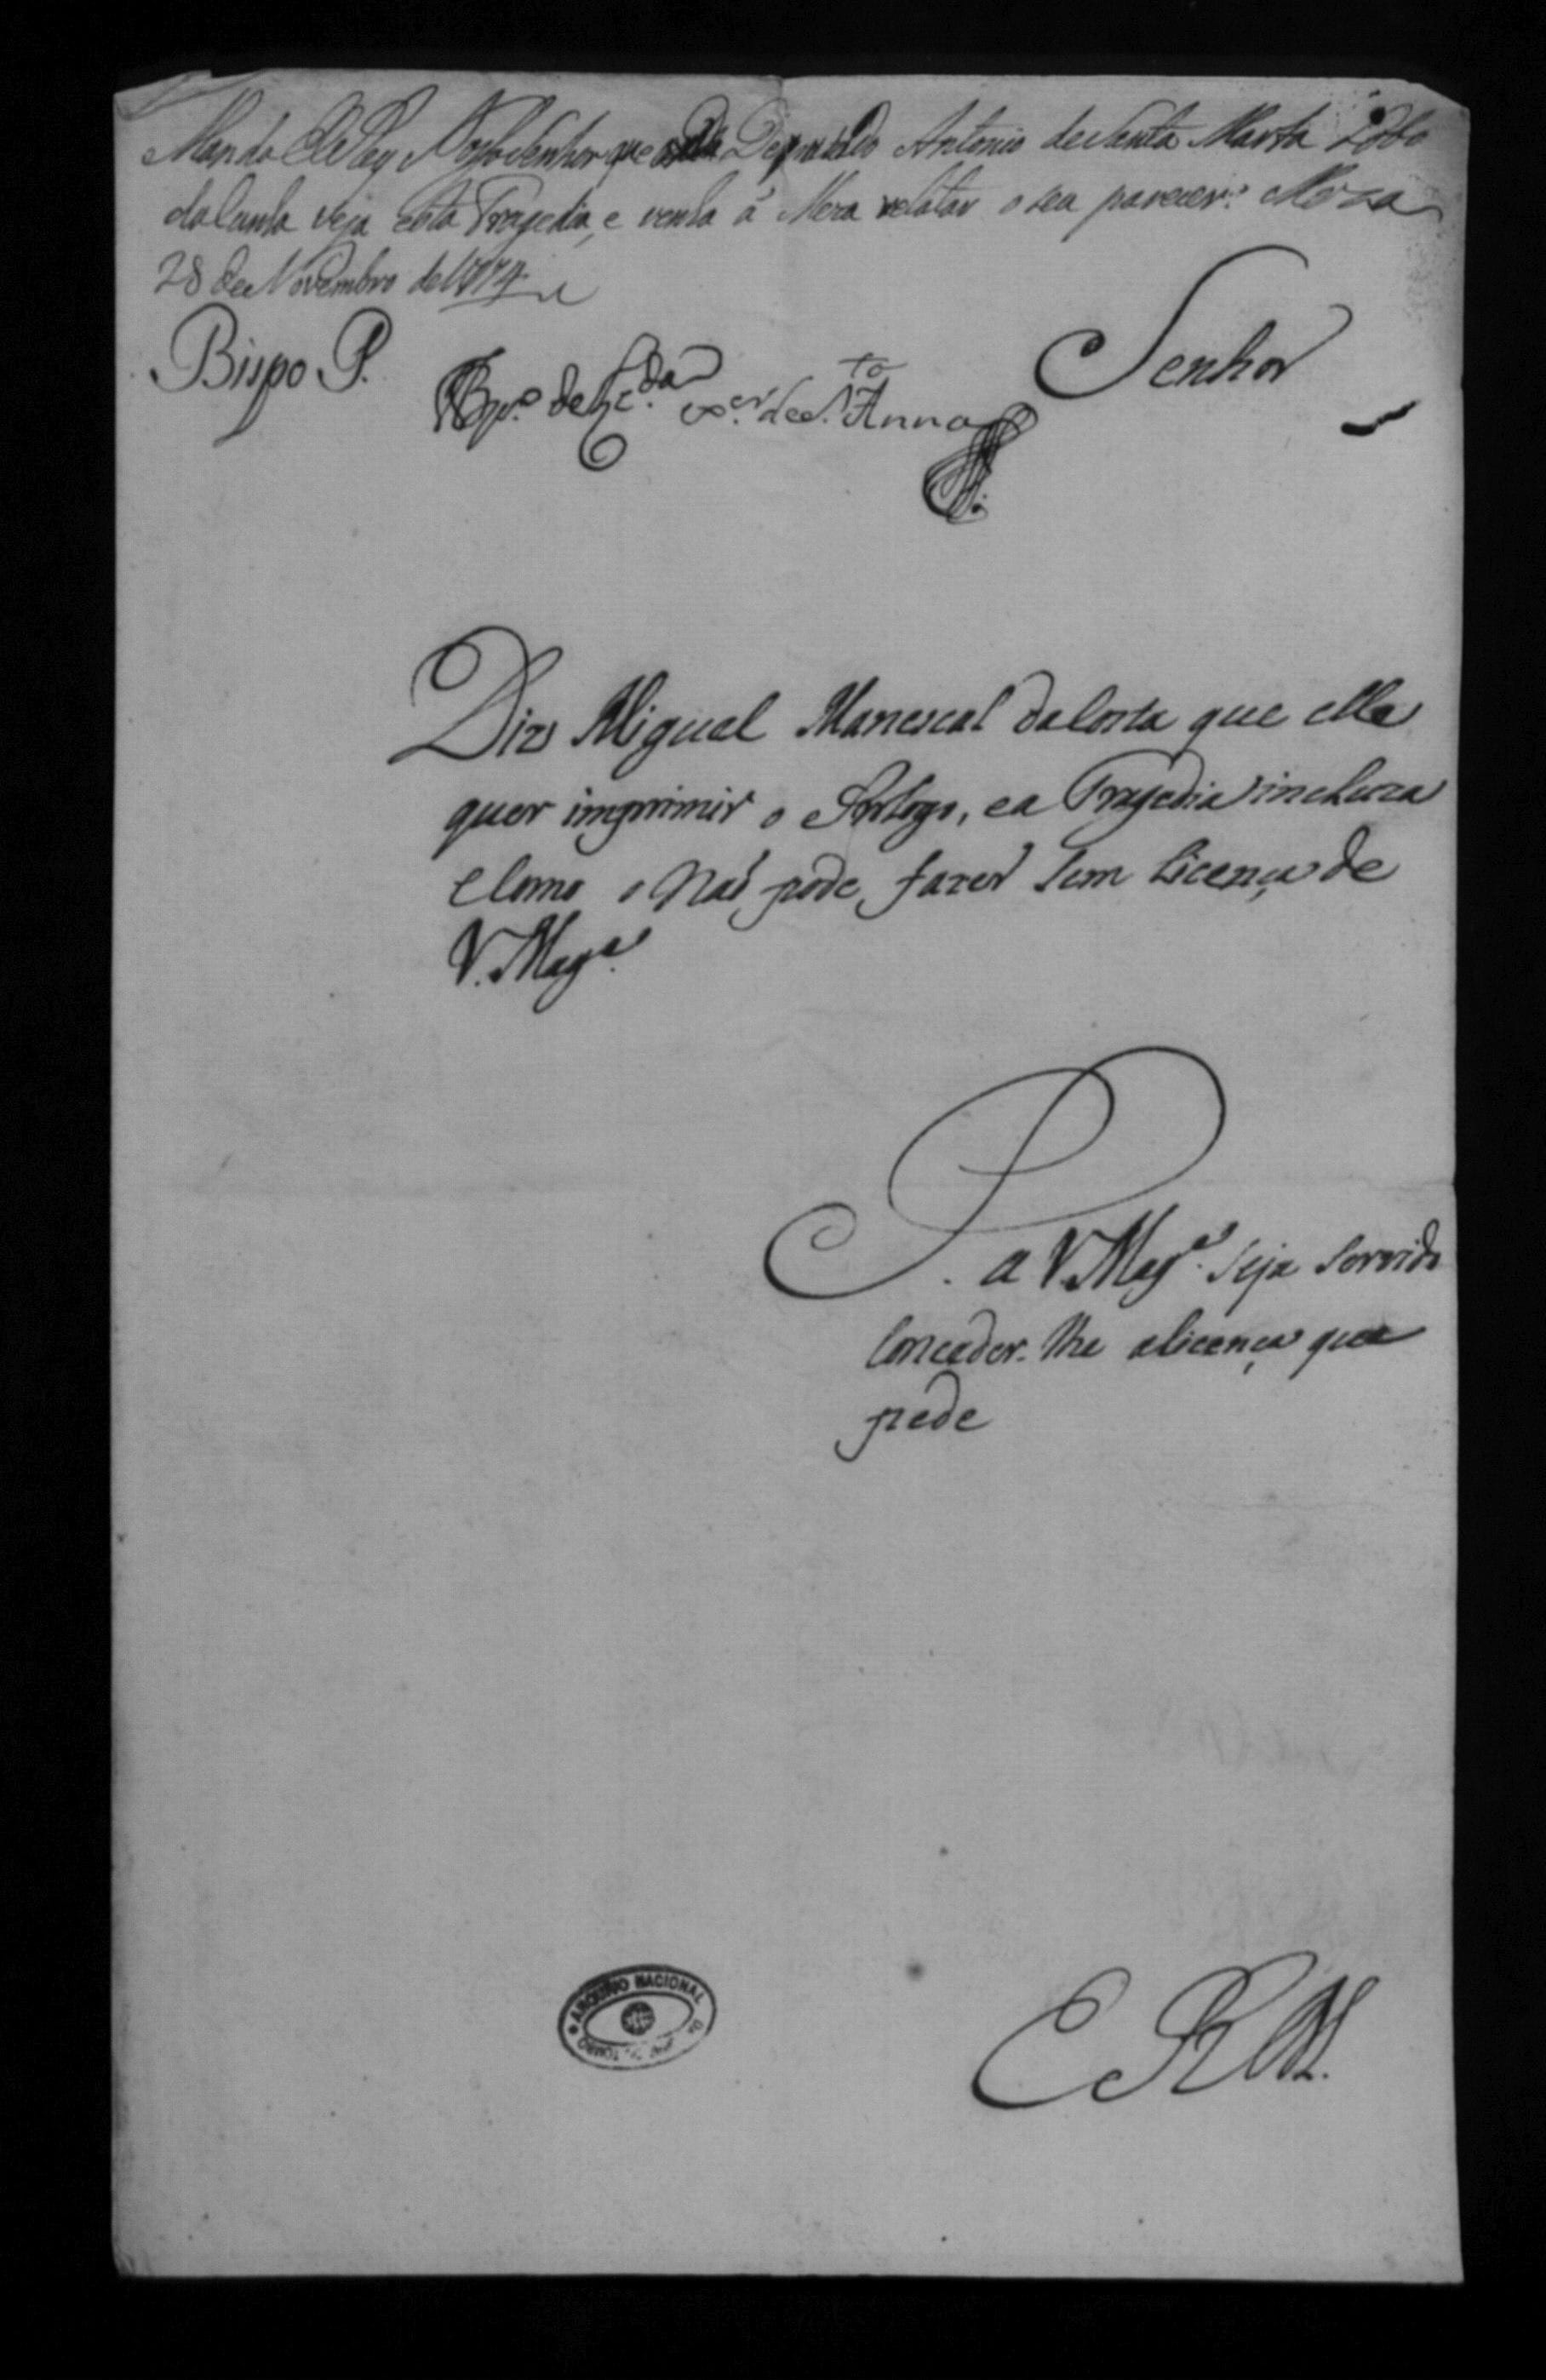 Manda ElRey Nosso Senhor que o Deputado Antonio de Santa Marta Lobo
da Cunha veja esta Tragedia, e venha á Meza relatar o seu parecer. Meza
28 de Novembro de 1774
Bispo P.
de S.to Anna
Senhor
Diz Miguel Manescal da Costa que elle
quer imprimir o Prologo, e a Tragedia incluza
e Como o Naõ pode fazer Sem Licença de
V. Mag.e
P. a V. Mag.e Seja Servido
Conceder-lhe a licença que
pede
E R M.
ARQUIVO NACIONAL
TOMBO